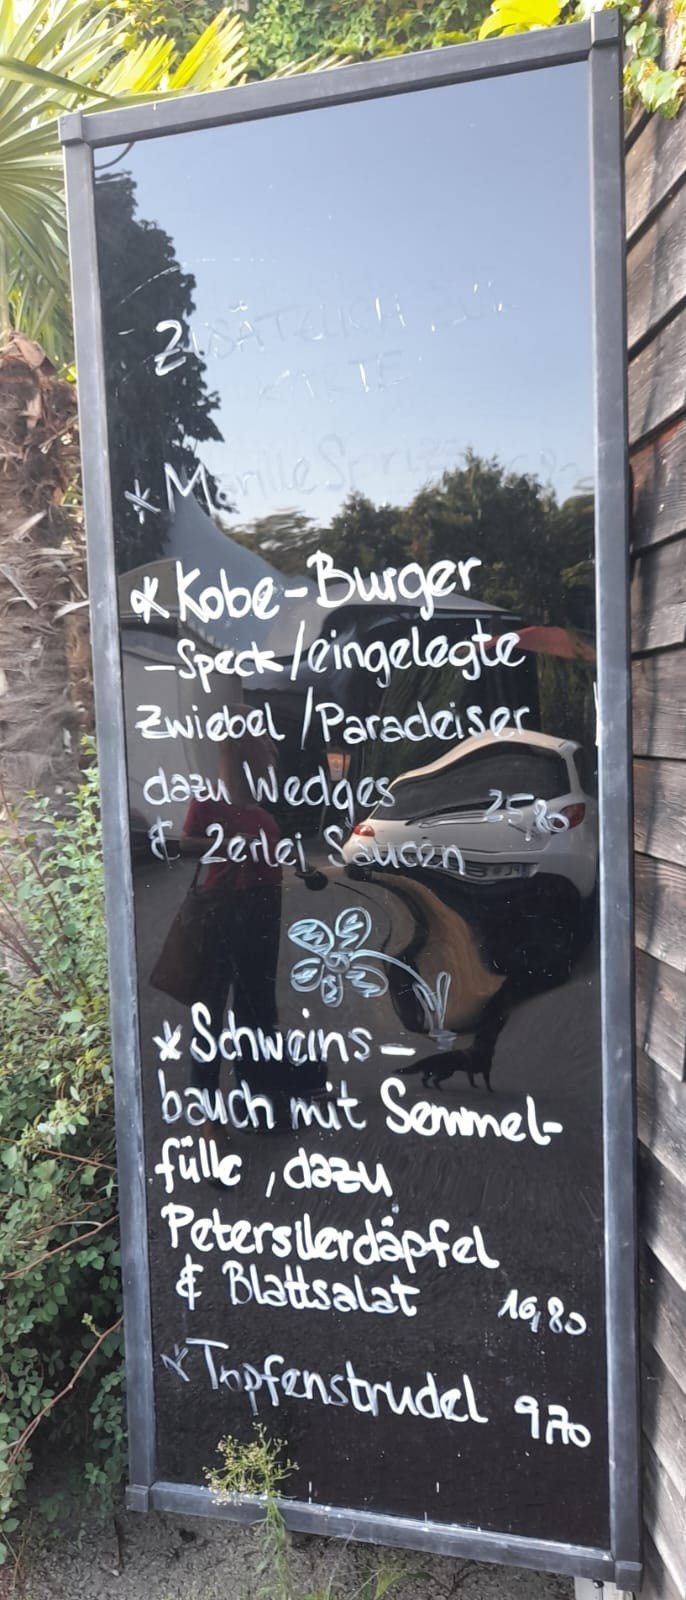 ZUSÄTZLICH ZUR
KARTE
* Marille Sprizz
* Kobe-Burger
- Speck / eingelegte
Zwiebel / Paradeiser
dazu Wedges 25,80
& 2erlei Saucen
* Schweins-
bauch mit Semmel-
fülle, dazu
Petersilerdäpfel
& Blattsalat 16,80
* Topfenstrudel 9,70